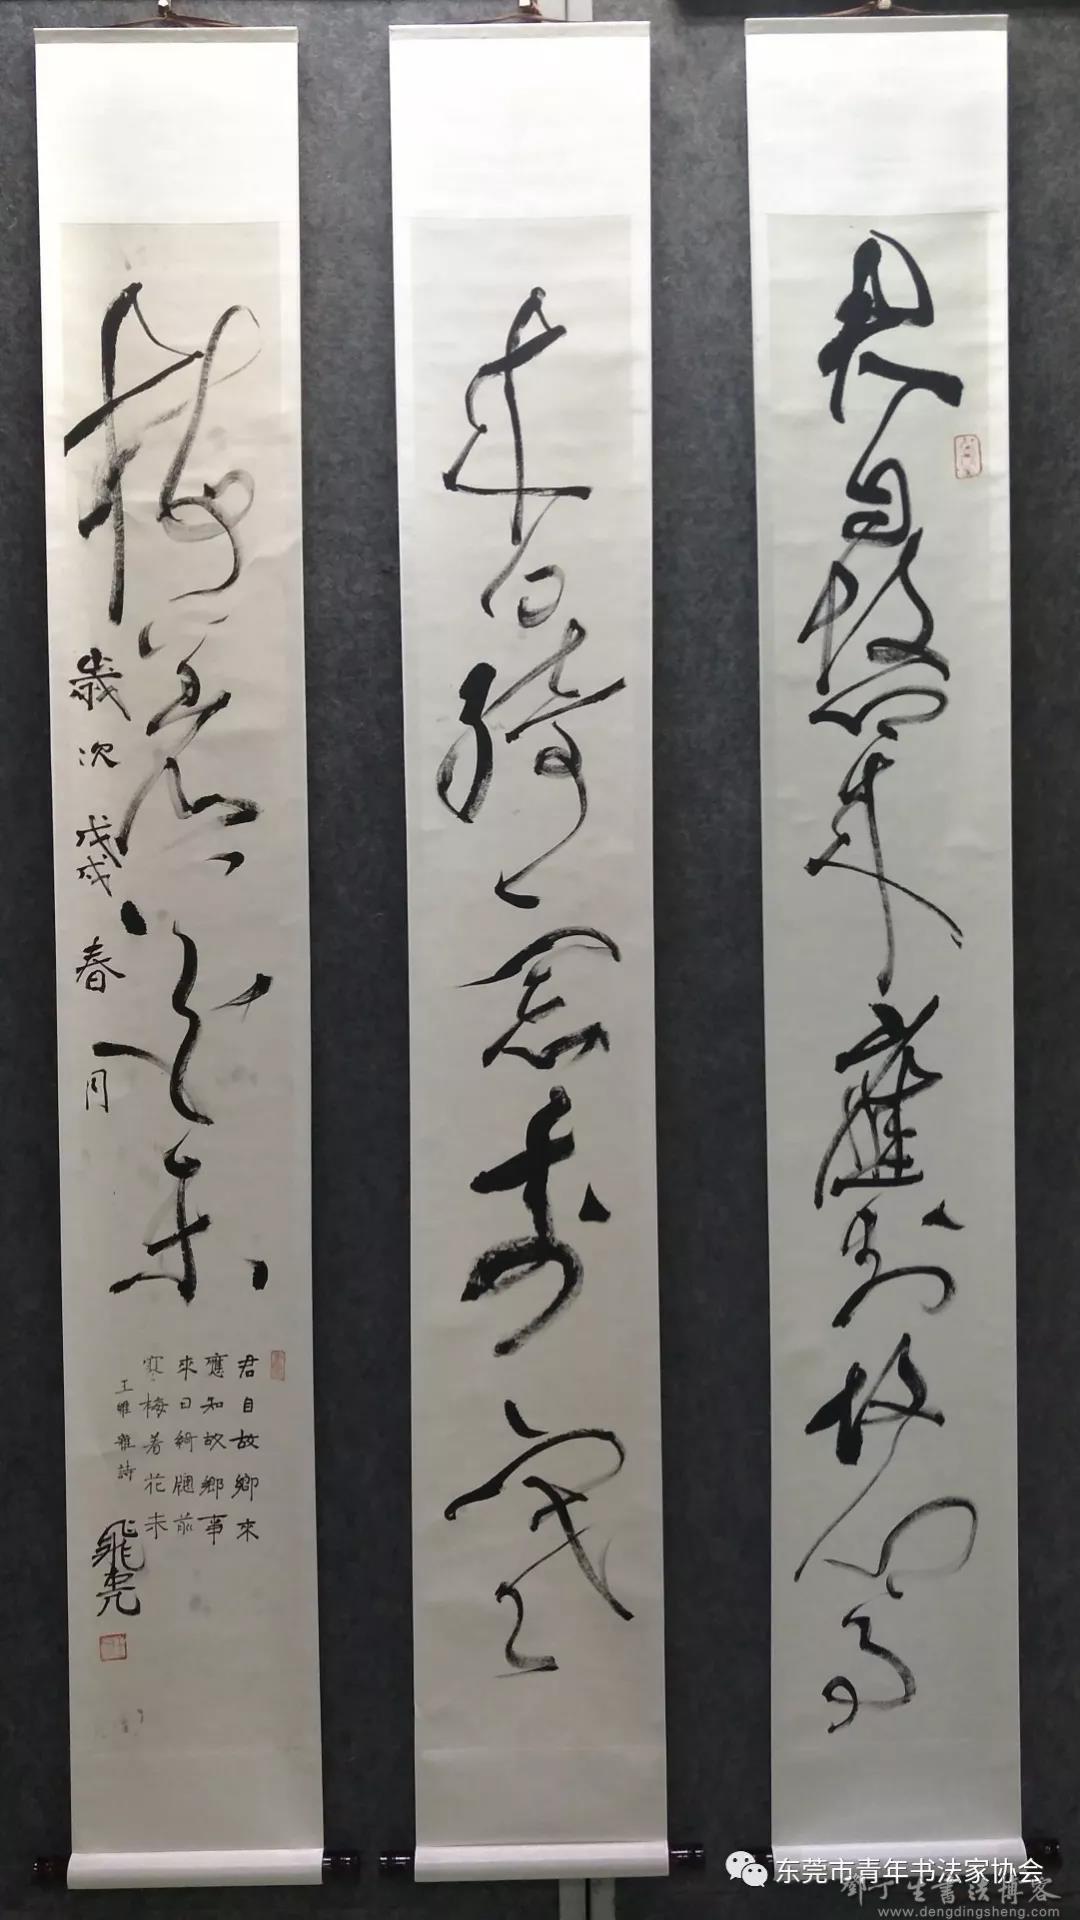 君自故鄉來應知故鄉事
來日綺窗前寒
梅著花未
歲次戊戌春月
君自故鄉來
應知故鄉事
來日綺窗前
寒梅著花未
王維雜詩
飛亮
东莞市青年书法家协会
邓丁生书法博客
www.dengdingsheng.com